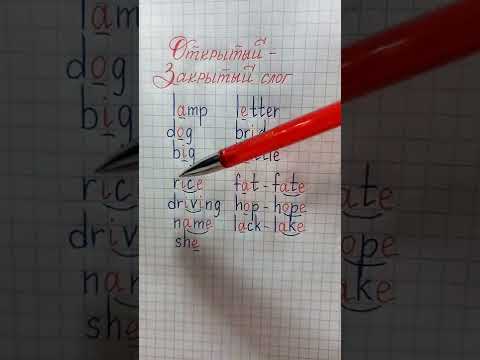 Открытый -
Закрытый слог
lamp letter
dog
big
rice fat - fate
driving hop - hope
name lack - lake
she